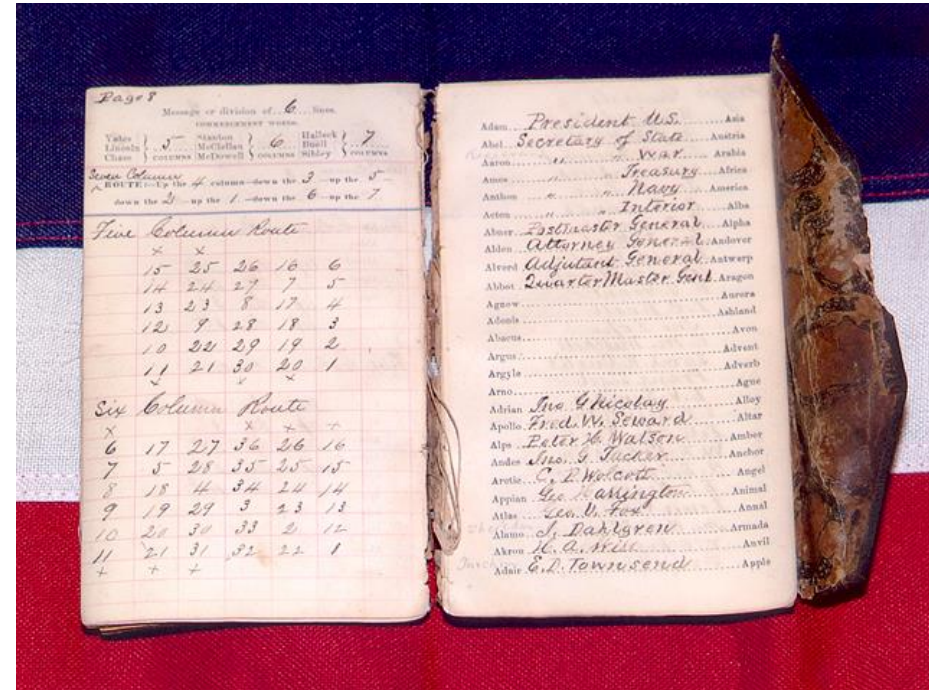 Page 8
Message or division of 6 lines.
COMMENCEMENT WORDS.
Yates } Stanton } Halleck }
Lincoln } 5 McClellan } 6 Buell } 7
Chase } COLUMNS McDowell } COLUMNS Sibley } COLUMNS
Seven Column
ROUTE:—Up the 4 column—down the 3—up the 5—
down the 2—up the 1—down the 6—up the 7
Five Column Route
x x
15 25 26 16 6
14 24 27 7 5
13 23 8 17 4
12 9 28 18 3
10 22 29 19 2
11 21 30 20 1
x x x
Six Column Route
x x x x
6 17 27 36 26 16
7 5 28 35 25 15
8 18 4 34 24 14
9 19 29 3 23 13
10 20 30 33 2 12
11 21 31 32 22 1
x x x
Adam President U.S. Asia
Abel Secretary of State Austria
Aaron " " War Arabia
Ames " " Treasury Africa
Anthon " " Navy America
Acton " " Interior Alba
Abner Postmaster General Alpha
Alden Attorney General Andover
Alverd Adjutant General Antwerp
Abbot QuarterMaster Genl Aragon
Agnew Aurora
Adonis Ashland
Abacus Avon
Argus Advent
Argyle Adverb
Arno Ague
Adrian Jno G Nicolay Alloy
Apollo Fred. W. Seward Altar
Alps Peter H. Watson Amber
Andes Jno. G. Tucker Anchor
Arctic C. P. Wolcott Angel
Appian Geo Harrington Animal
Atlas Geo. V. Fox Annal
Alamo J. Dahlgren Armada
Akron Anvil
Adair E. D. Townsend Apple